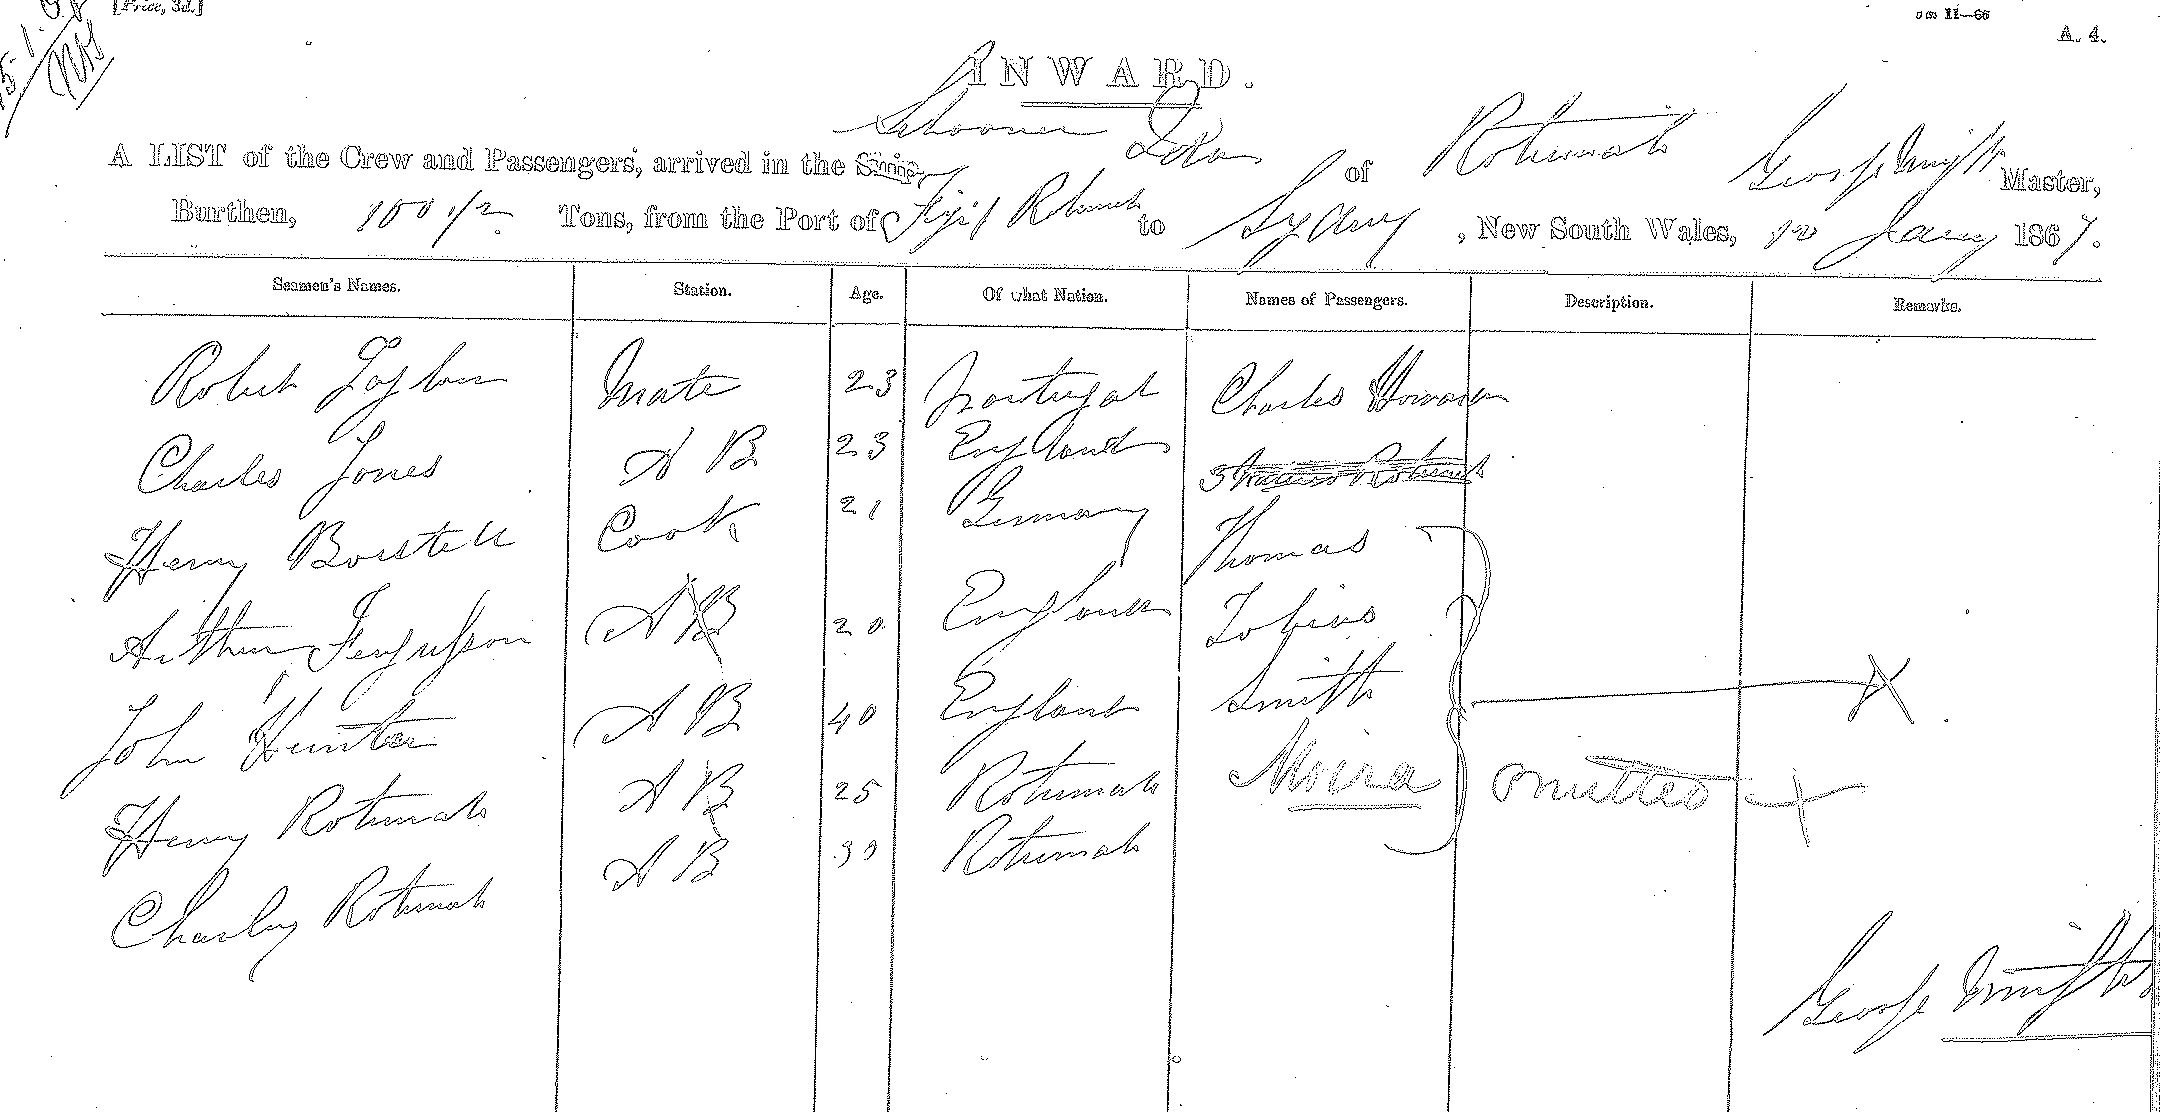 [Price, 3d.]
11—66
A. 4.
INWARD.
Schooner
A LIST of the Crew and Passengers, arrived in the Ship, of Rotumah George Wright Master,
Burthen, 100 1/2 Tons, from the Port of Fiji & Rotumah to Sydney, New South Wales, 12 Jany 1867.
Seamen's Names. Station. Age. Of what Nation. Names of Passengers. Description. Remarks.
Robert Taylor Mate 23 Portugal Charles
Charles Jones A B 23 England 3 Natives Rotumah
Henry Borstell Cook 21 Germany Thomas
Arthur Fergusson A B 20 England Tobias
John Hunter A B 40 England Smith X
Henry Rotumah A B 25 Rotumah Moira omitted X
Charley Rotumah A B 30 Rotumah
George Wright